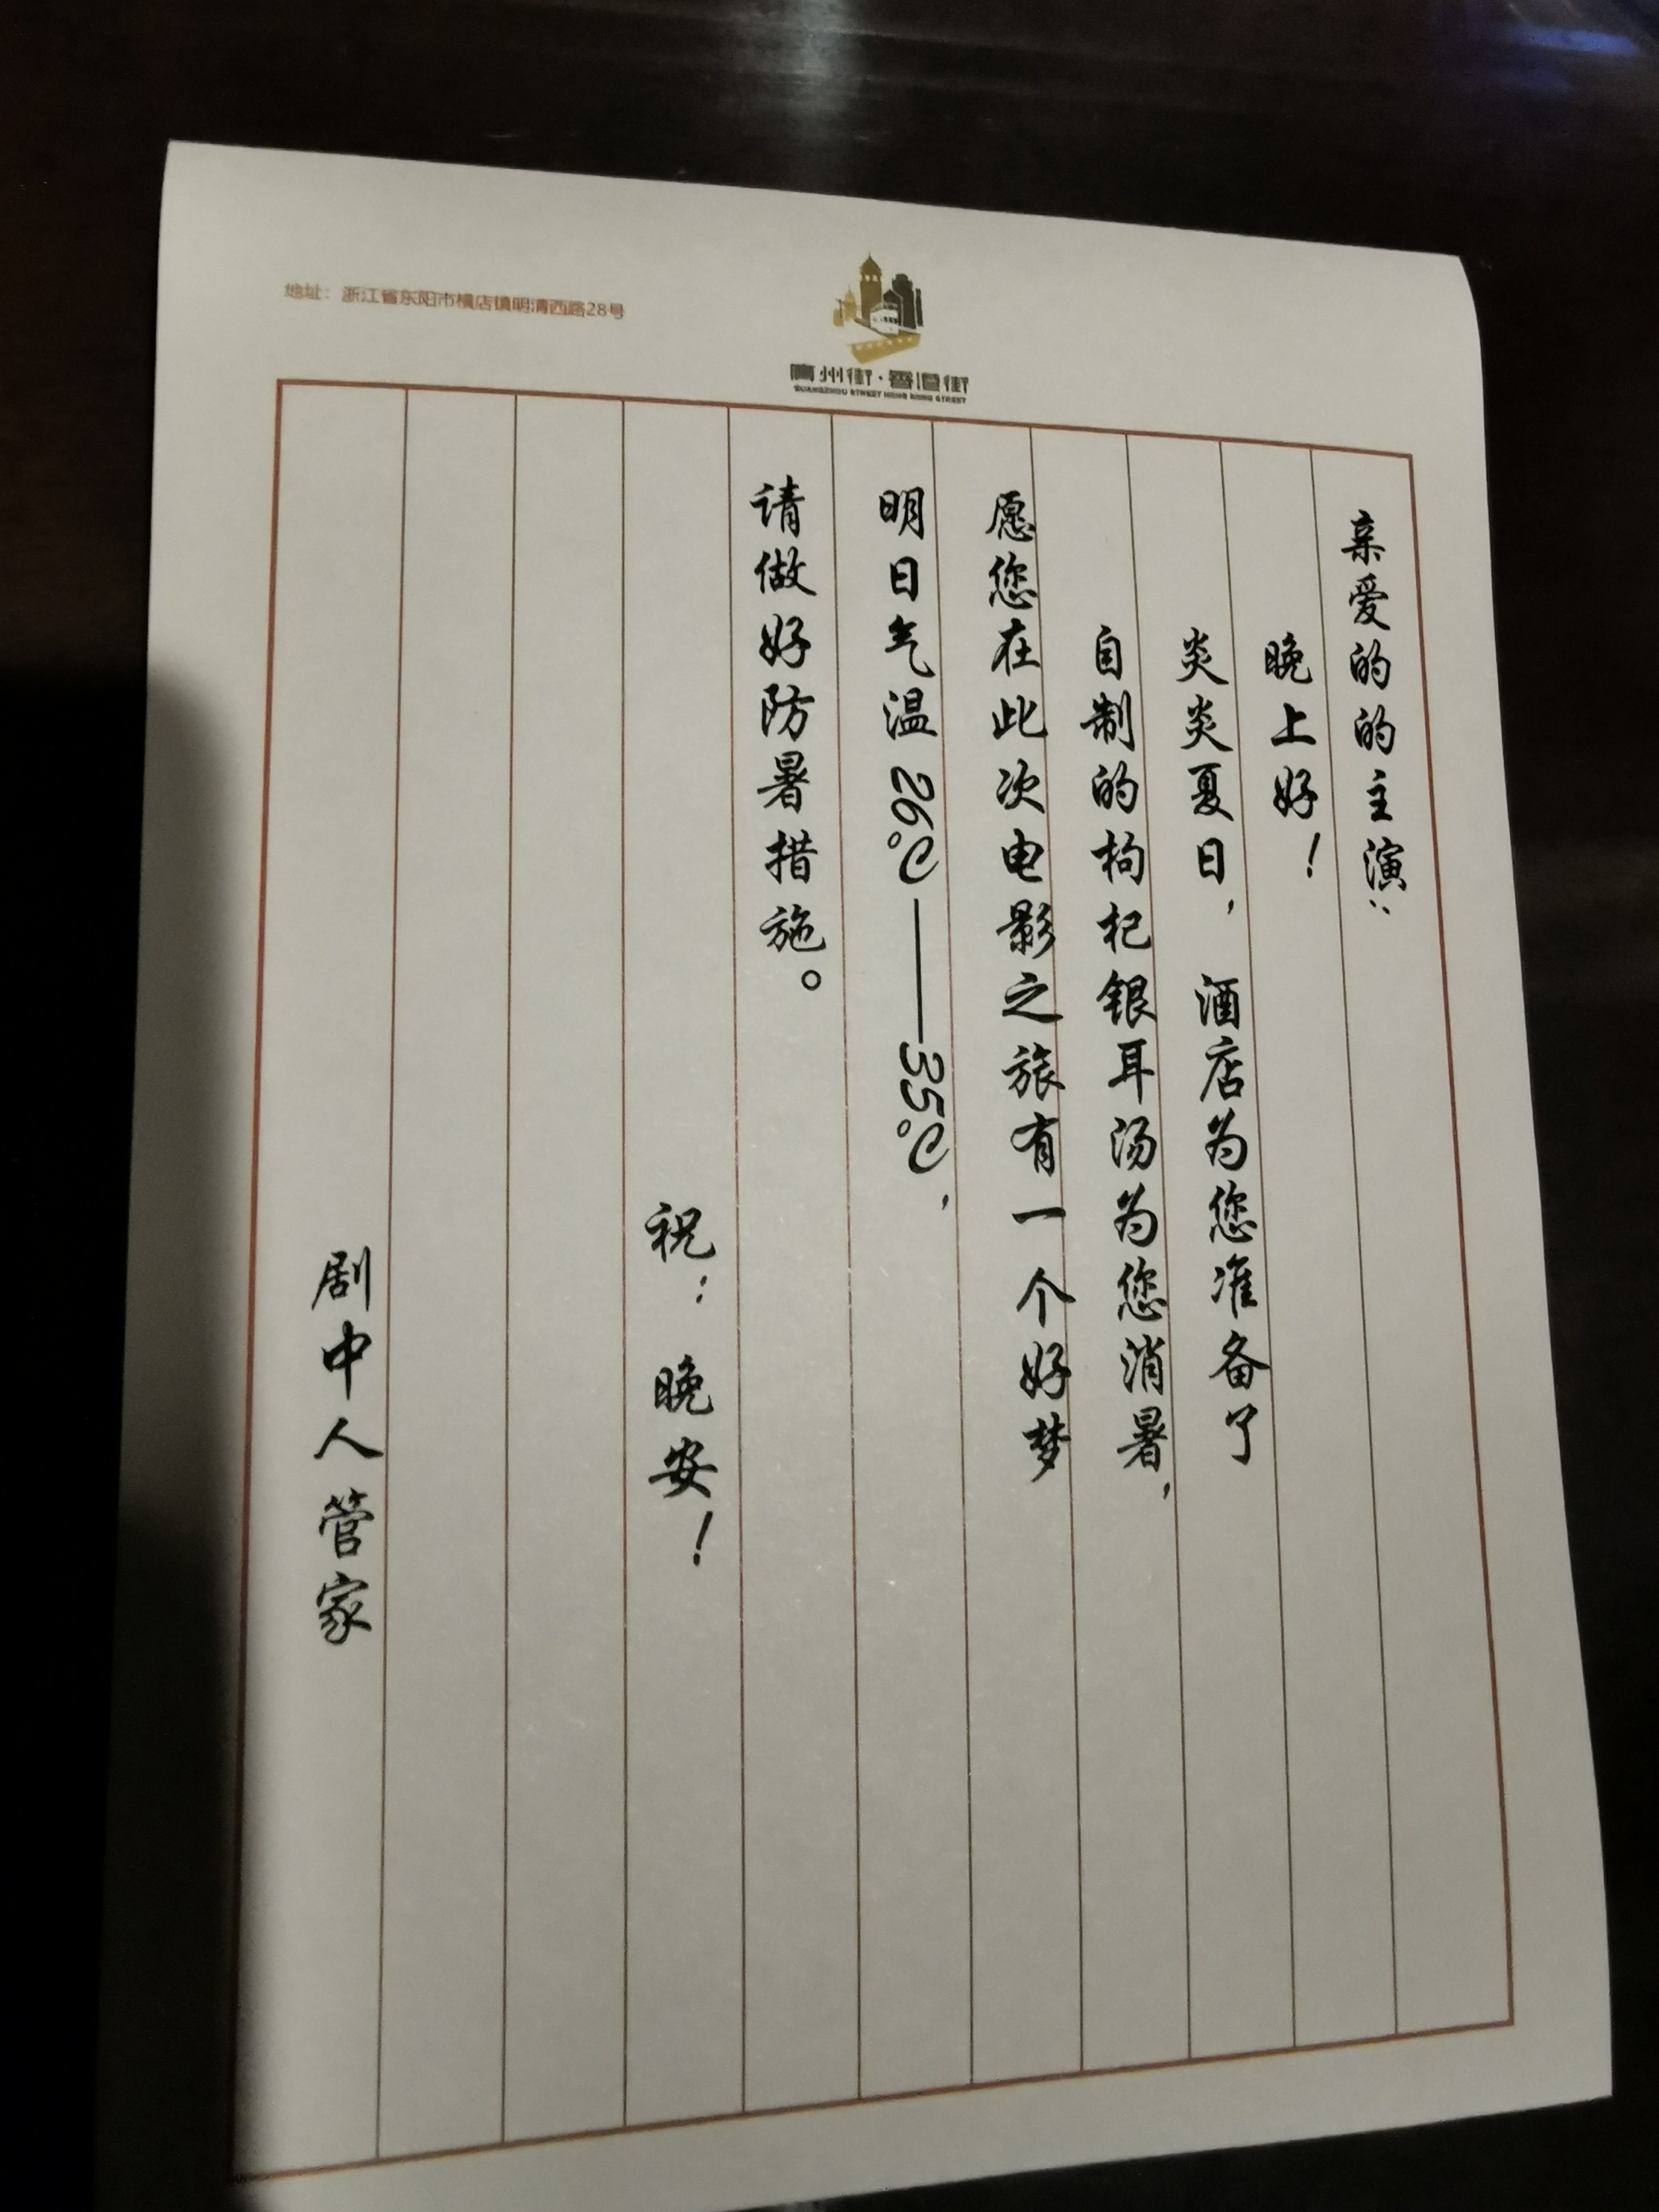 地址：浙江省东阳市横店镇明清西路28号
廣州街·香港街
GUANGZHOU STREET HONG KONG STREET
亲爱的的主演：
晚上好！
炎炎夏日，酒店为您准备了
自制的枸杞银耳汤为您消暑，
愿您在此次电影之旅有一个好梦
明日气温26℃——35℃，
请做好防暑措施。
祝：晚安！
剧中人管家